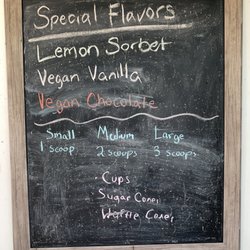 Special Flavors
Lemon Sorbet
Vegan Vanilla
Vegan Chocolate
Small Medium Large
1 scoop 2 scoops 3 scoops
• Cups
Sugar Cones
Waffle Cones